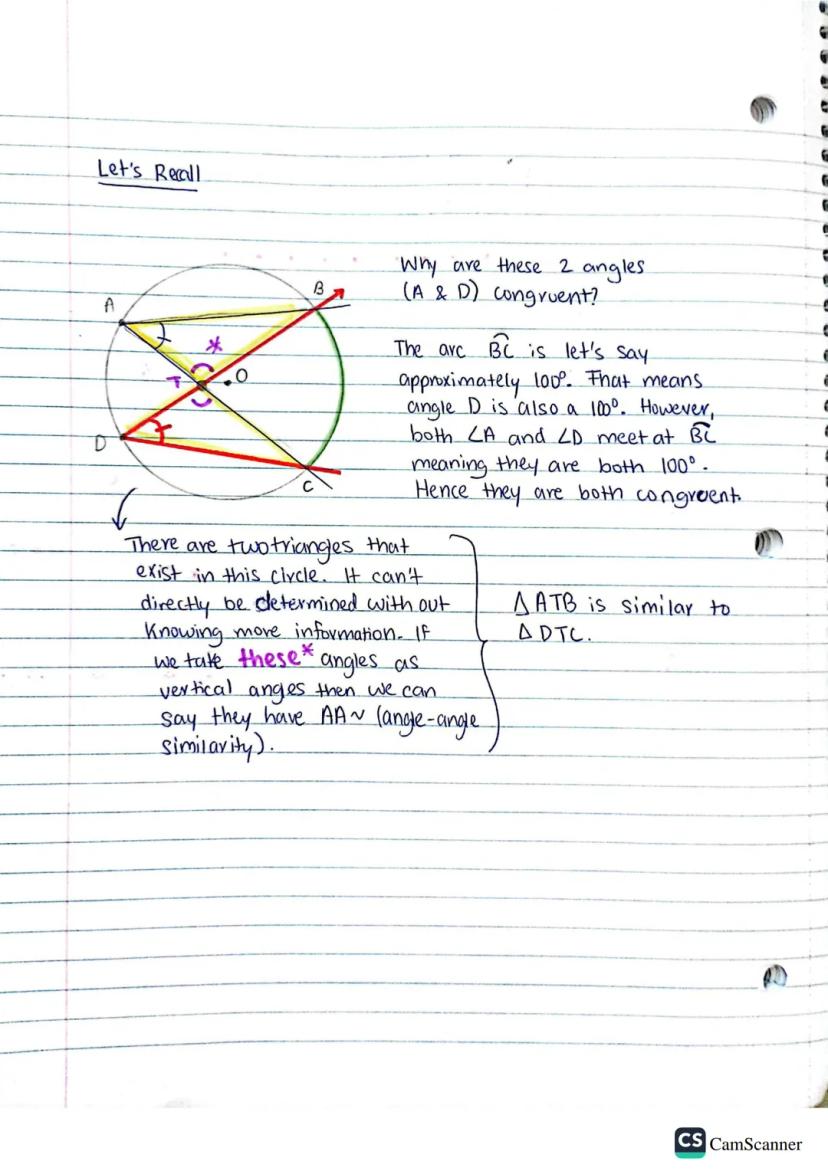 Let's Recall
Why are these 2 angles
(A & D) congruent?
A
B
The arc BC is let's say
approximately 100°. That means
angle D is also a 100°. However,
both ∠A and ∠D meet at BC
meaning they are both 100°.
Hence they are both congruent.
*
T
O
D
C
There are two triangles that
exist in this circle. It can't
directly be determined with out
knowing more information. If
we take these* angles as
vertical anges then we can
say they have AA~ (ange-angle
similarity).
△ATB is similar to
△DTC.
CS CamScanner